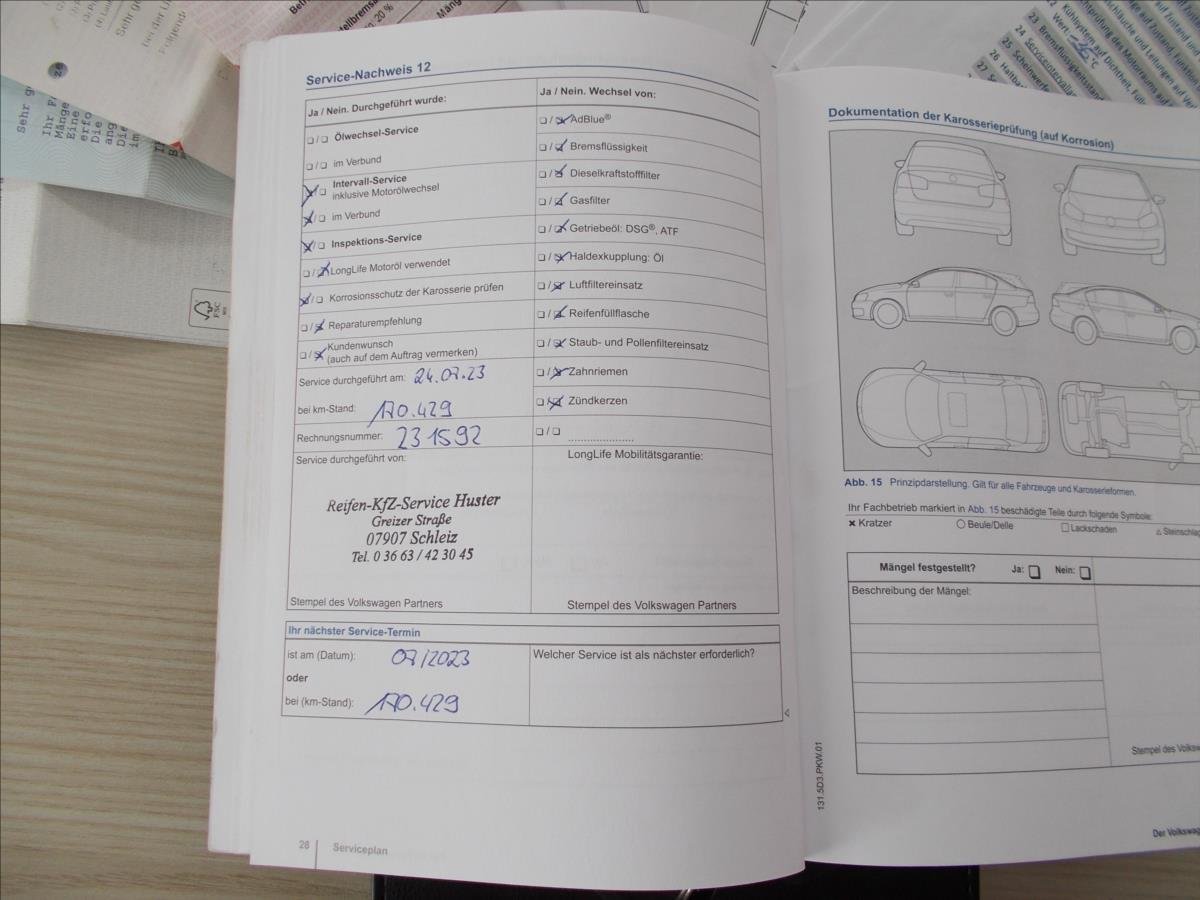 Service-Nachweis 12
Ja / Nein. Durchgeführt wurde:
❑/❑ Ölwechsel-Service
❑/❑ im Verbund
Intervall-Service
inklusive Motorölwechsel
im Verbund
Inspektions-Service
LongLife Motoröl verwendet
Korrosionsschutz der Karosserie prüfen
Reparaturempfehlung
Kundenwunsch
(auch auf dem Auftrag vermerken)
Service durchgeführt am: 24.07.23
bei km-Stand: 170.429
Rechnungsnummer: 231592
Service durchgeführt von:
Reifen-KfZ-Service Huster
Greizer Straße
07907 Schleiz
Tel. 0 36 63 / 42 30 45
Stempel des Volkswagen Partners
Ja / Nein. Wechsel von:
AdBlue®
Bremsflüssigkeit
Dieselkraftstofffilter
Gasfilter
Getriebeöl: DSG®, ATF
Haldexkupplung: Öl
Luftfiltereinsatz
Reifenfüllflasche
Staub- und Pollenfiltereinsatz
Zahnriemen
Zündkerzen
❑/❑ ......................
LongLife Mobilitätsgarantie:
Stempel des Volkswagen Partners
Ihr nächster Service-Termin
ist am (Datum): 07/2023
oder
bei (km-Stand): 170.429
Welcher Service ist als nächster erforderlich?
28 Serviceplan
Dokumentation der Karosserieprüfung (auf Korrosion)
Abb. 15 Prinzipdarstellung. Gilt für alle Fahrzeuge und Karosserieformen.
Ihr Fachbetrieb markiert in Abb. 15 beschädigte Teile durch folgende Symbole:
× Kratzer ○ Beule/Delle □ Lackschaden △ Steinschlag
Mängel festgestellt? Ja: ❑ Nein: ❑
Beschreibung der Mängel:
Stempel des Volksw
131.5D3.PKW.01
Der Volkswag
FSC